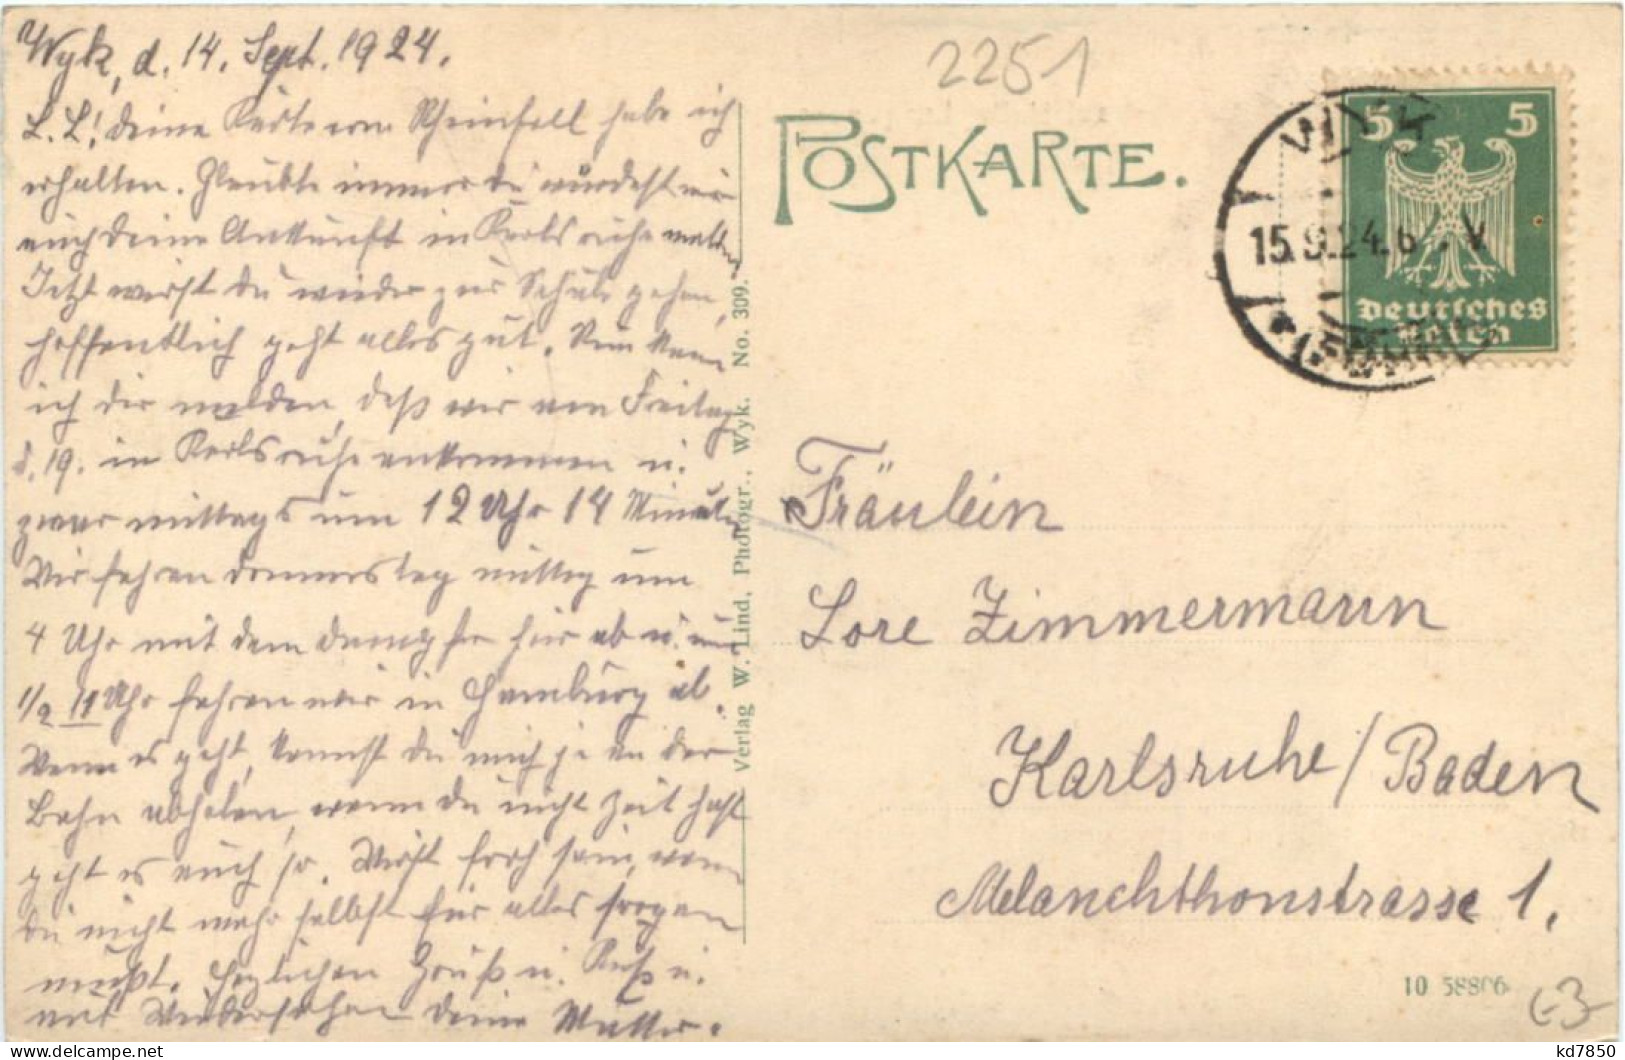 Wyk, d. 14. Sept. 1924.
L. L.! Deine Karte vom Rheinfall habe ich
erhalten. Glaubte immer du würdest mir
auch Deine Ankunft in Karlsruhe melden
Jetzt wirst du wieder zur Schule gehen,
hoffentlich geht alles gut. Nun kann
ich dir melden, daß wir am Freitag
d. 19. in Karlsruhe ankommen u.
zwar mittags um 12 Uhr 14 Minuten
Wir fahren Donnerstag mittag um
4 Uhr mit dem Dampfer hier ab u. um
1/2 11 Uhr fahren wir in Hamburg ab.
Wenn es geht, kannst du mich ja an der
Bahn abholen, wenn du nicht Zeit hast
geht es auch so. Wirst froh sein, wenn
du nicht mehr selbst für alles sorgen
mußt. Herzlichen Gruß u. Kuß u.
auf Wiedersehen Deine Mutter.
Verlag W. Lind, Photogr., Wyk. No. 309.
2251
POSTKARTE.
WYK
15.9.24.6 . V
(FÖHR)
5 5
Deutsches
Reich
Fräulein
Lore Zimmermann
Karlsruhe / Baden
Melanchthonstrasse 1.
10 58806
akpool.de
kd7850